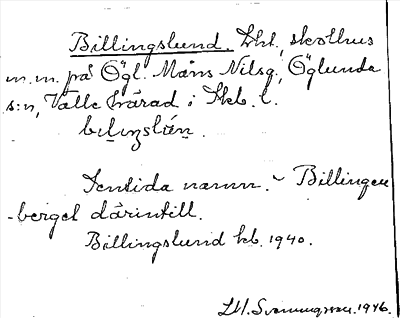 Billingslund. Lht., skolhus
m.m. på Ögl. Måns Nilsg., Öglunda
s:n, Valle härad i Skb. l.
Sentida namn. ~ Billingen
-berget därintill.
Billingslund kb. 1940.
1946.